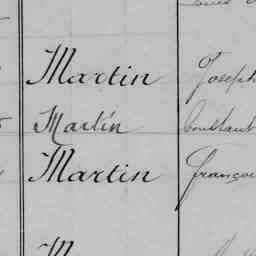 Martin Joseph
Martin Constant
Martin françoi